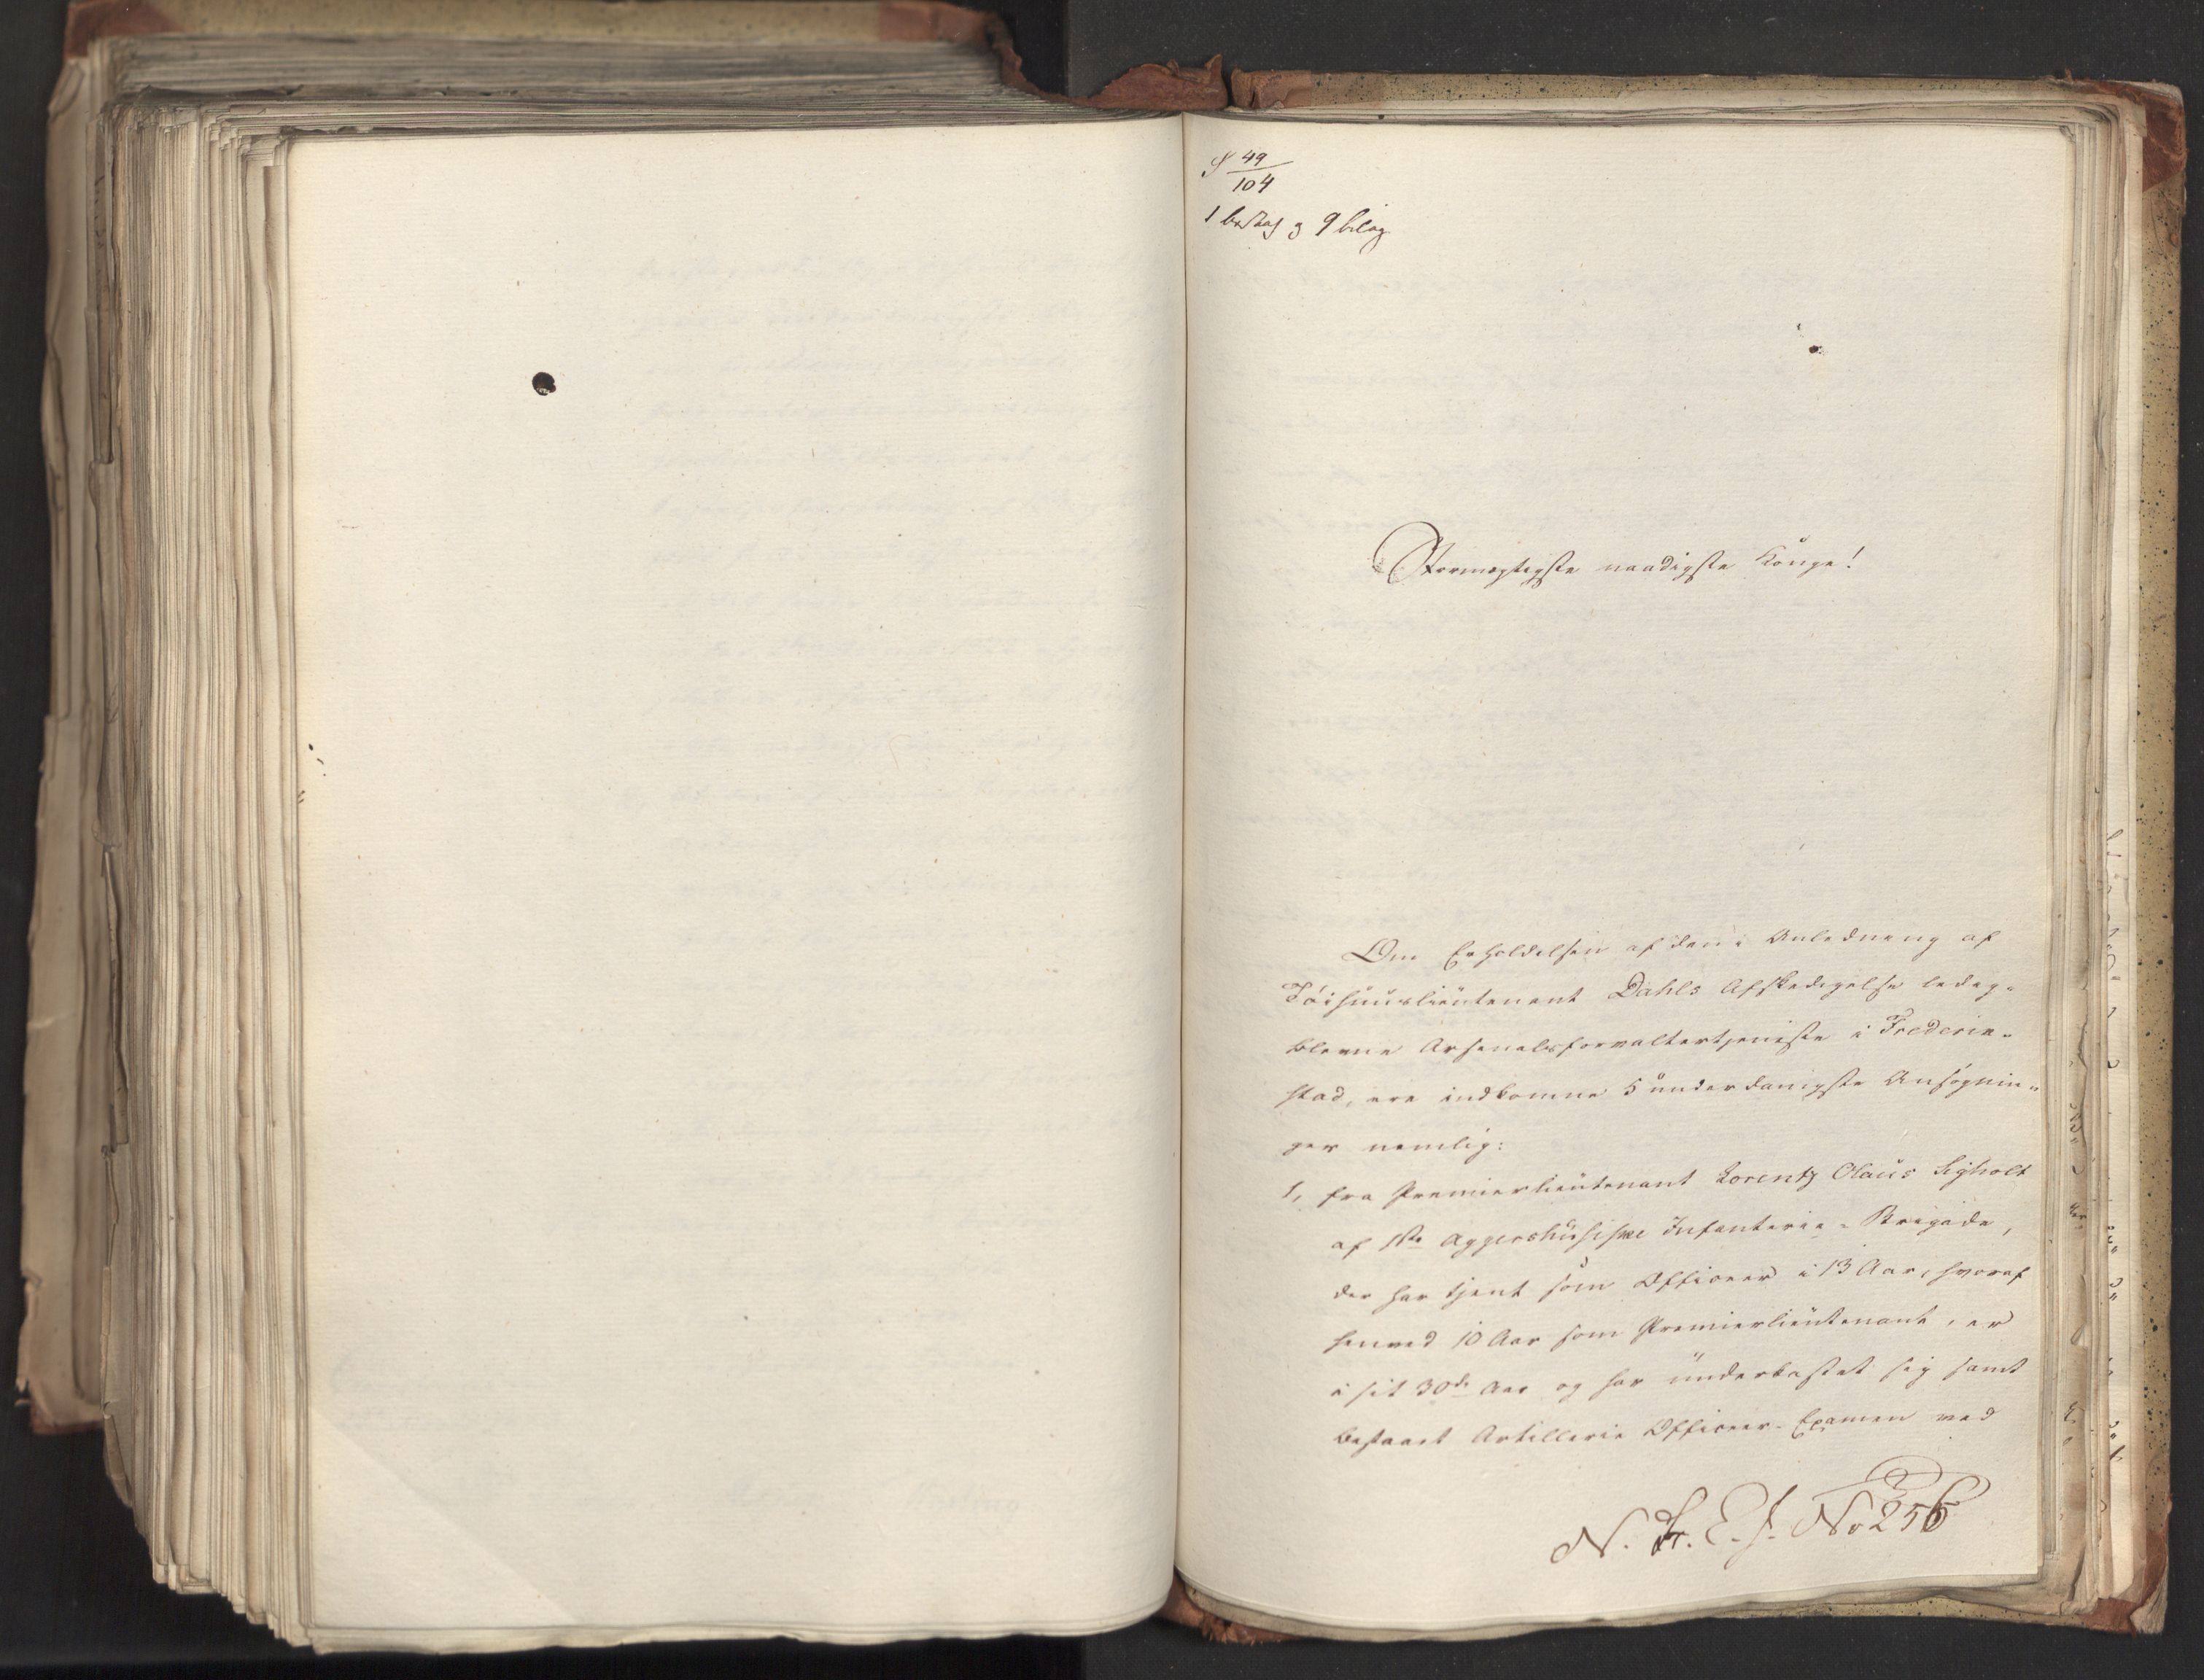 49
104
1 bestal og 9 bilag
Stormægtigste naadigste Konge!
Om Erholdelsen af den i Anledning af
Töihuuslieutenant Dahls Afskedigelse ledig-
blevne Arsenalsforvaltertjeneste i Frederik-
stad, ere indkomne 5 underdanigste Ansøgnin-
ger nemlig:
1, fra Premierlieutenant Lorentz Olaus Sigholt
af 1ste Aggershusiske Infanterie-Brigade,
der har tjent som Officeer i 13 Aar, hvoraf
henved 10 Aar som Premierlieutenant, er
i sit 30de Aar og har underkastet sig samt
bestaaet Artillerie Officeer-Examen ved
N. Fr. E. J. No 256